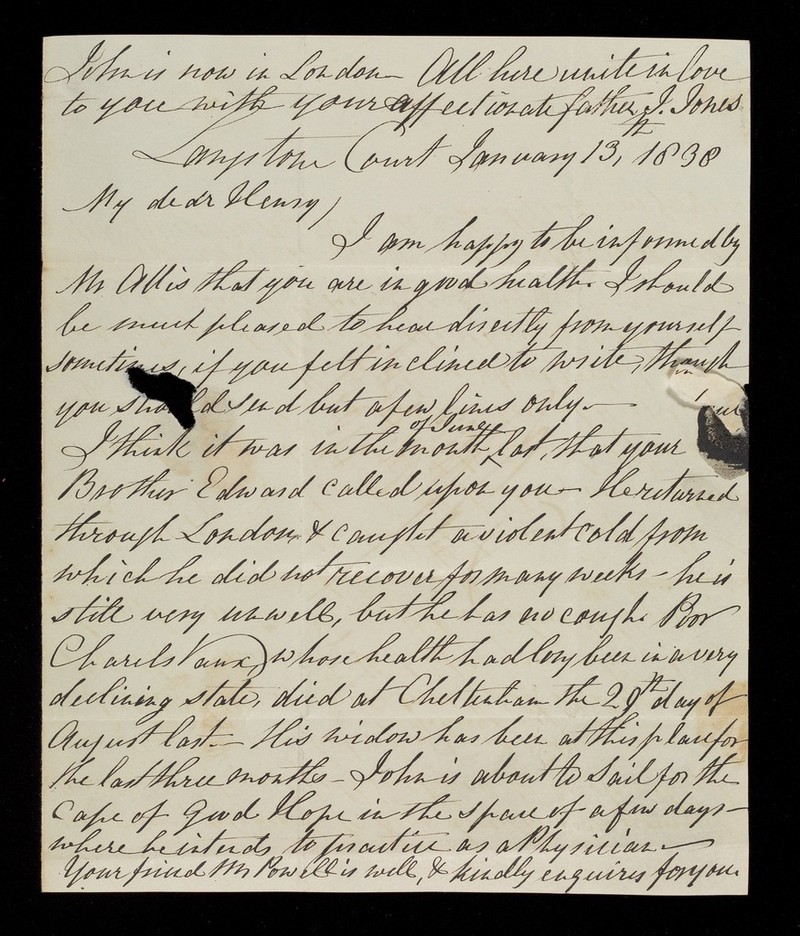 John is now in London – All here unite in love
to you with your affectionate father, J. Jones.
Langstone Court January 13th, 1838
My dear Henry,
I am happy to be informed by
Mr Allis that you are in good health. I should
be much pleased to hear directly from yourself
sometimes, if you felt inclined to write, though
you should send but a few lines only. –
of June
I think it was in the month ^ last, that your
Brother Edward called upon you – He returned
through London, & caught a violent cold from
which he did not recover for many weeks – he is
still very unwell, but he has no cough. Poor
Charels Vaux) whose health had long been in a very
declining state, died at Cheltenham the 29th day of
August last. – His widow has been at this place for
the last three months – John is about to sail for the
Cape of Good Hope in the space of a few days –
where he intends to practice as a Physician –
Your friend Mr Powell is well, & kindly enquires for you.